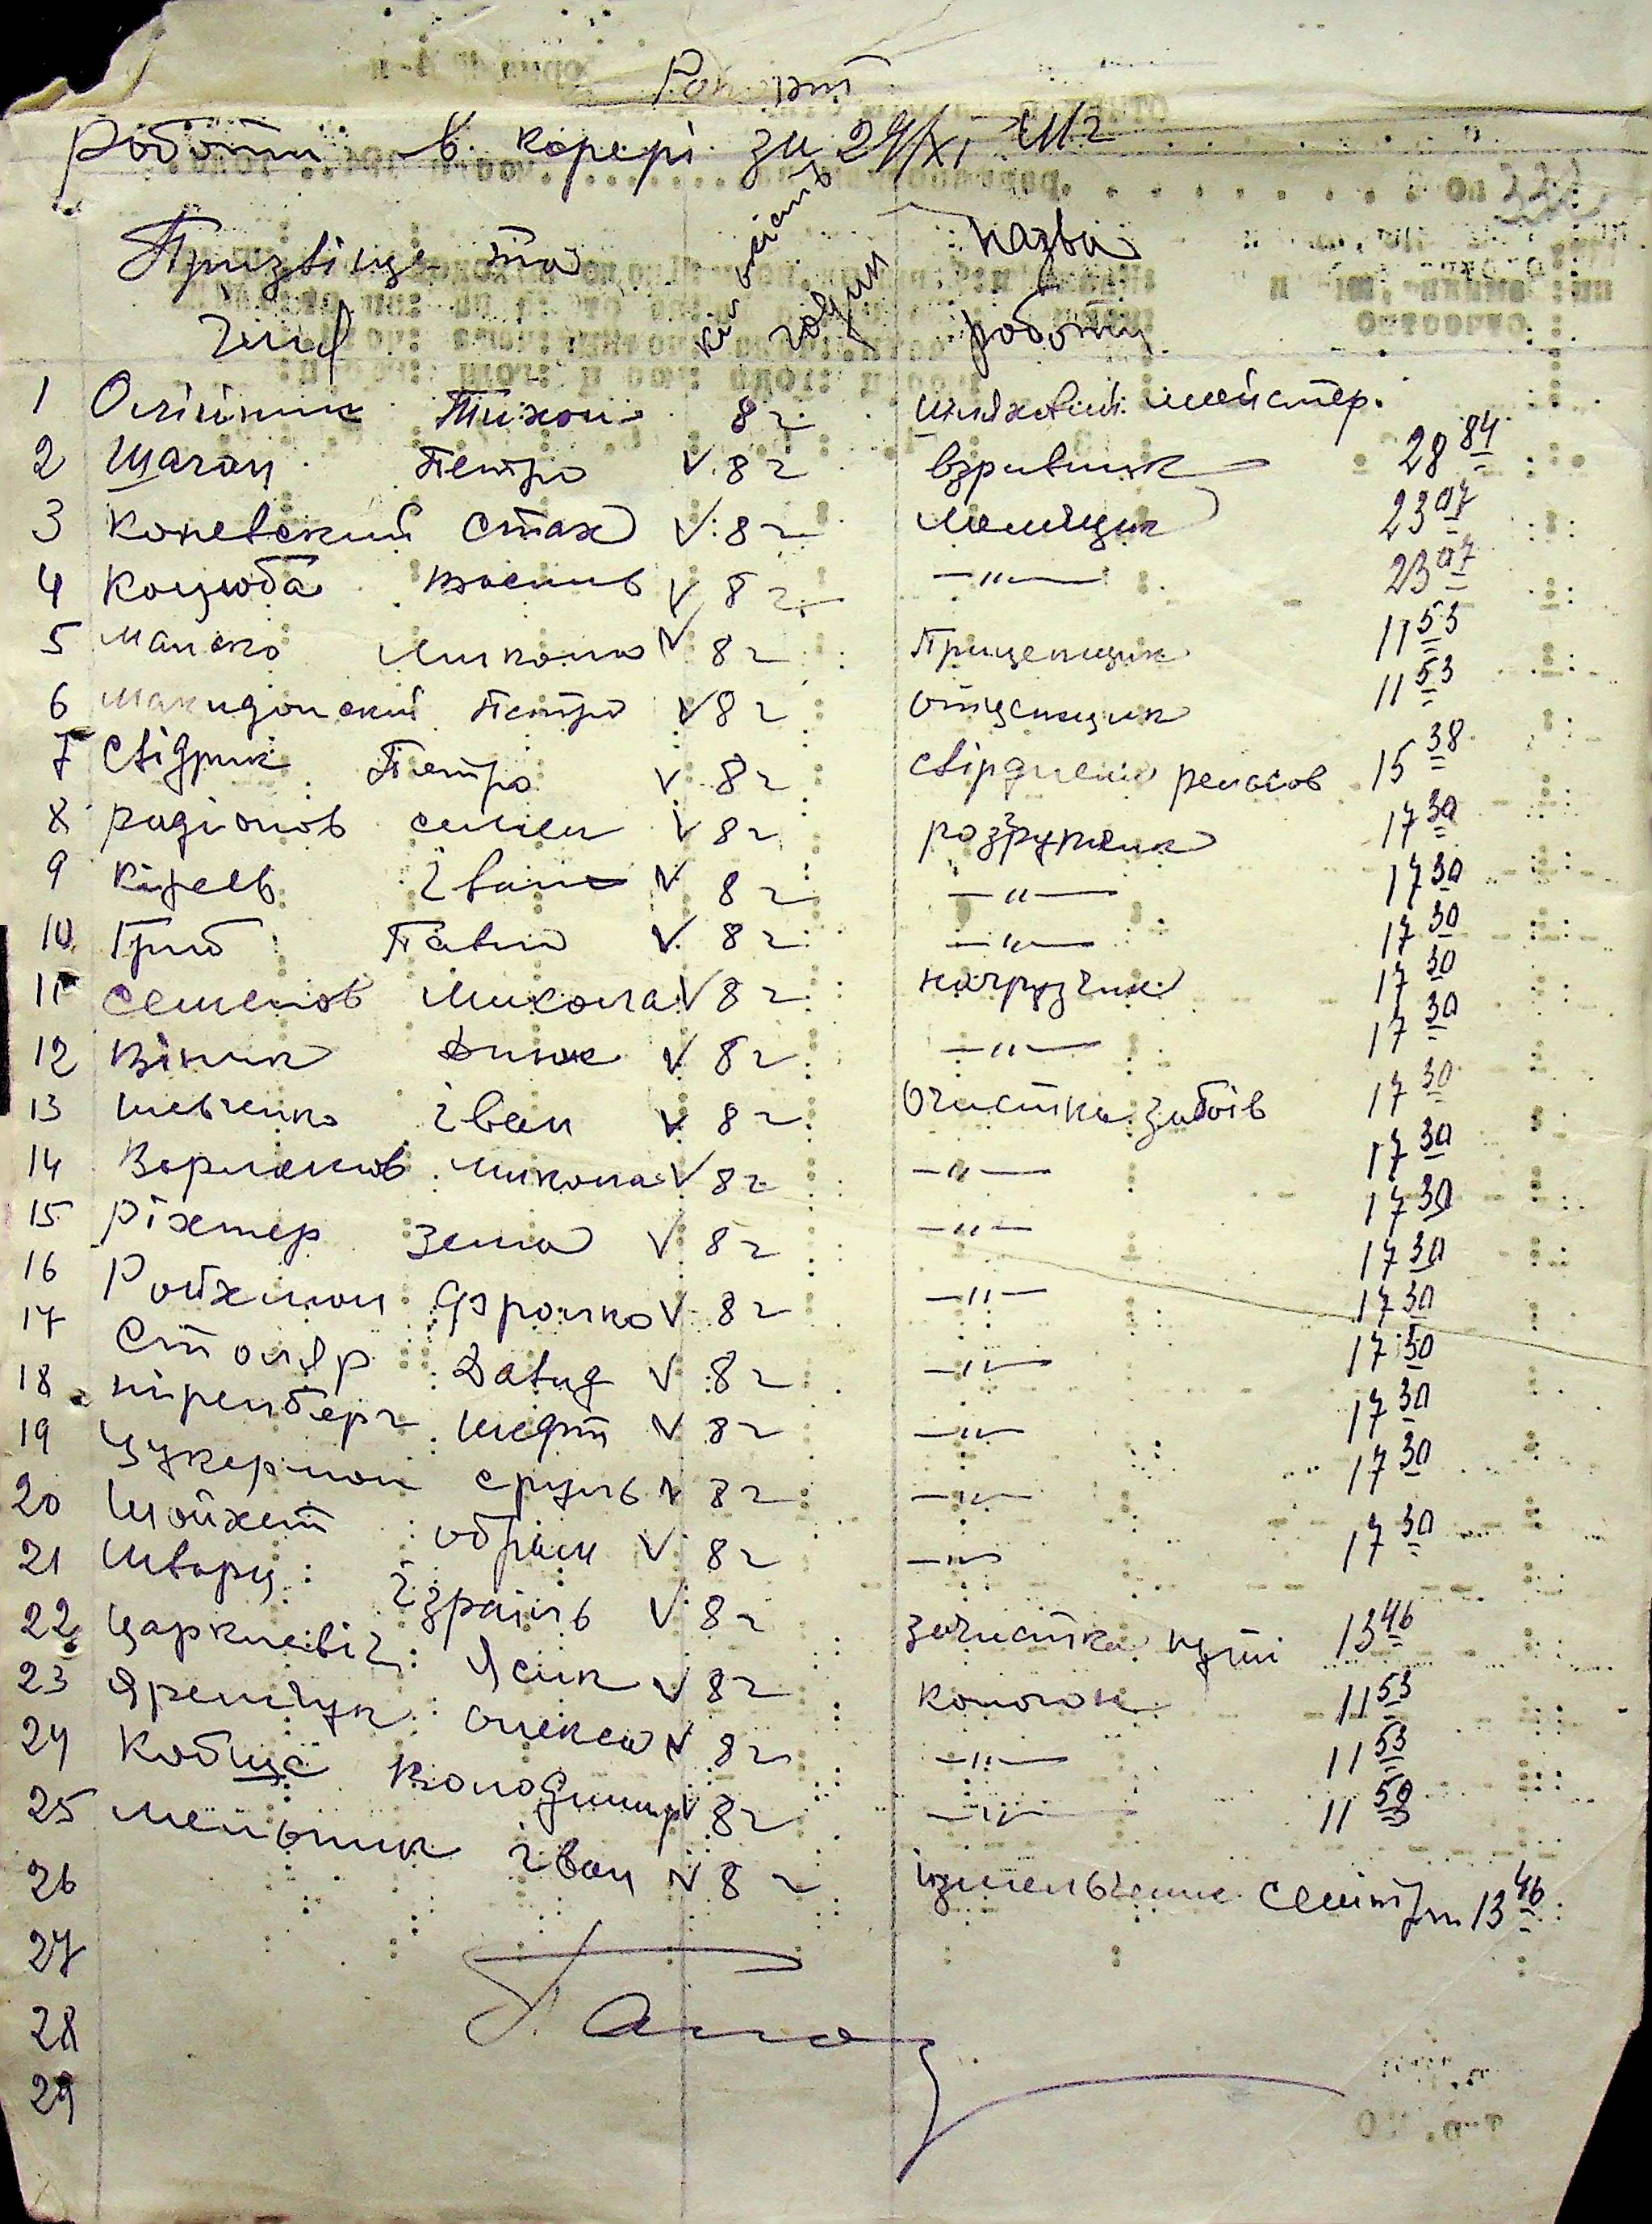 Рапорт
Роботи в карері за 29/XI 41 г
Призвіще та
імя
кільність
годин
Назва
роботи
1 Олійник Тихон 8 г шляховий мейстер.
2 Шаган Петро V 8 г взривник 28 84
3 Коневский Стах V 8 г 23 07
4 Коцюба Василь V 8 г —"— 23 07
5 Манько Микола V 8 г Прицепщик 11 53
6 Македонский Петро V 8 г Отцепщик 11 53
7 Свідрик Петро V 8 г свірдлени рельсов 15 38
8 Радіонов Семен V 8 г розгрузчик 17 30
9 Кірєев Іван V 8 г —"— 17 30
10 Гриб Павло V 8 г —"— 17 30
11 Семенов Микола V 8 г нагрузчик 17 30
12 Віник V 8 г —"— 17 30
13 Шевченко Іван V 8 г Очистка забоїв 17 30
14 Варламов Микола V 8 г —"— 17 30
15 Ріхтер Зелма V 8 г —"— 17 30
16 Ройхман Фроико V 8 г —"— 17 30
17 Столяр Давид V 8 г —"— 17 30
18 Ніренберг V 8 г —"— 17 30
19 Цукерман Сруль V 8 г —"— 17 30
20 Шойхет Обрам V 8 г —"— 17 30
21 Шварц Ізраїль V 8 г —"— 17 30
22 Царклевіч Ясик V 8 г зачистка путі 13 46
23 Яремчук Олекса V 8 г коногон 11 53
24 Кобица Володимир V 8 г —"— 11 53
25 Мельник Іван V 8 г —"— 11 53
26 ізмельчение 13 46
27
28
29